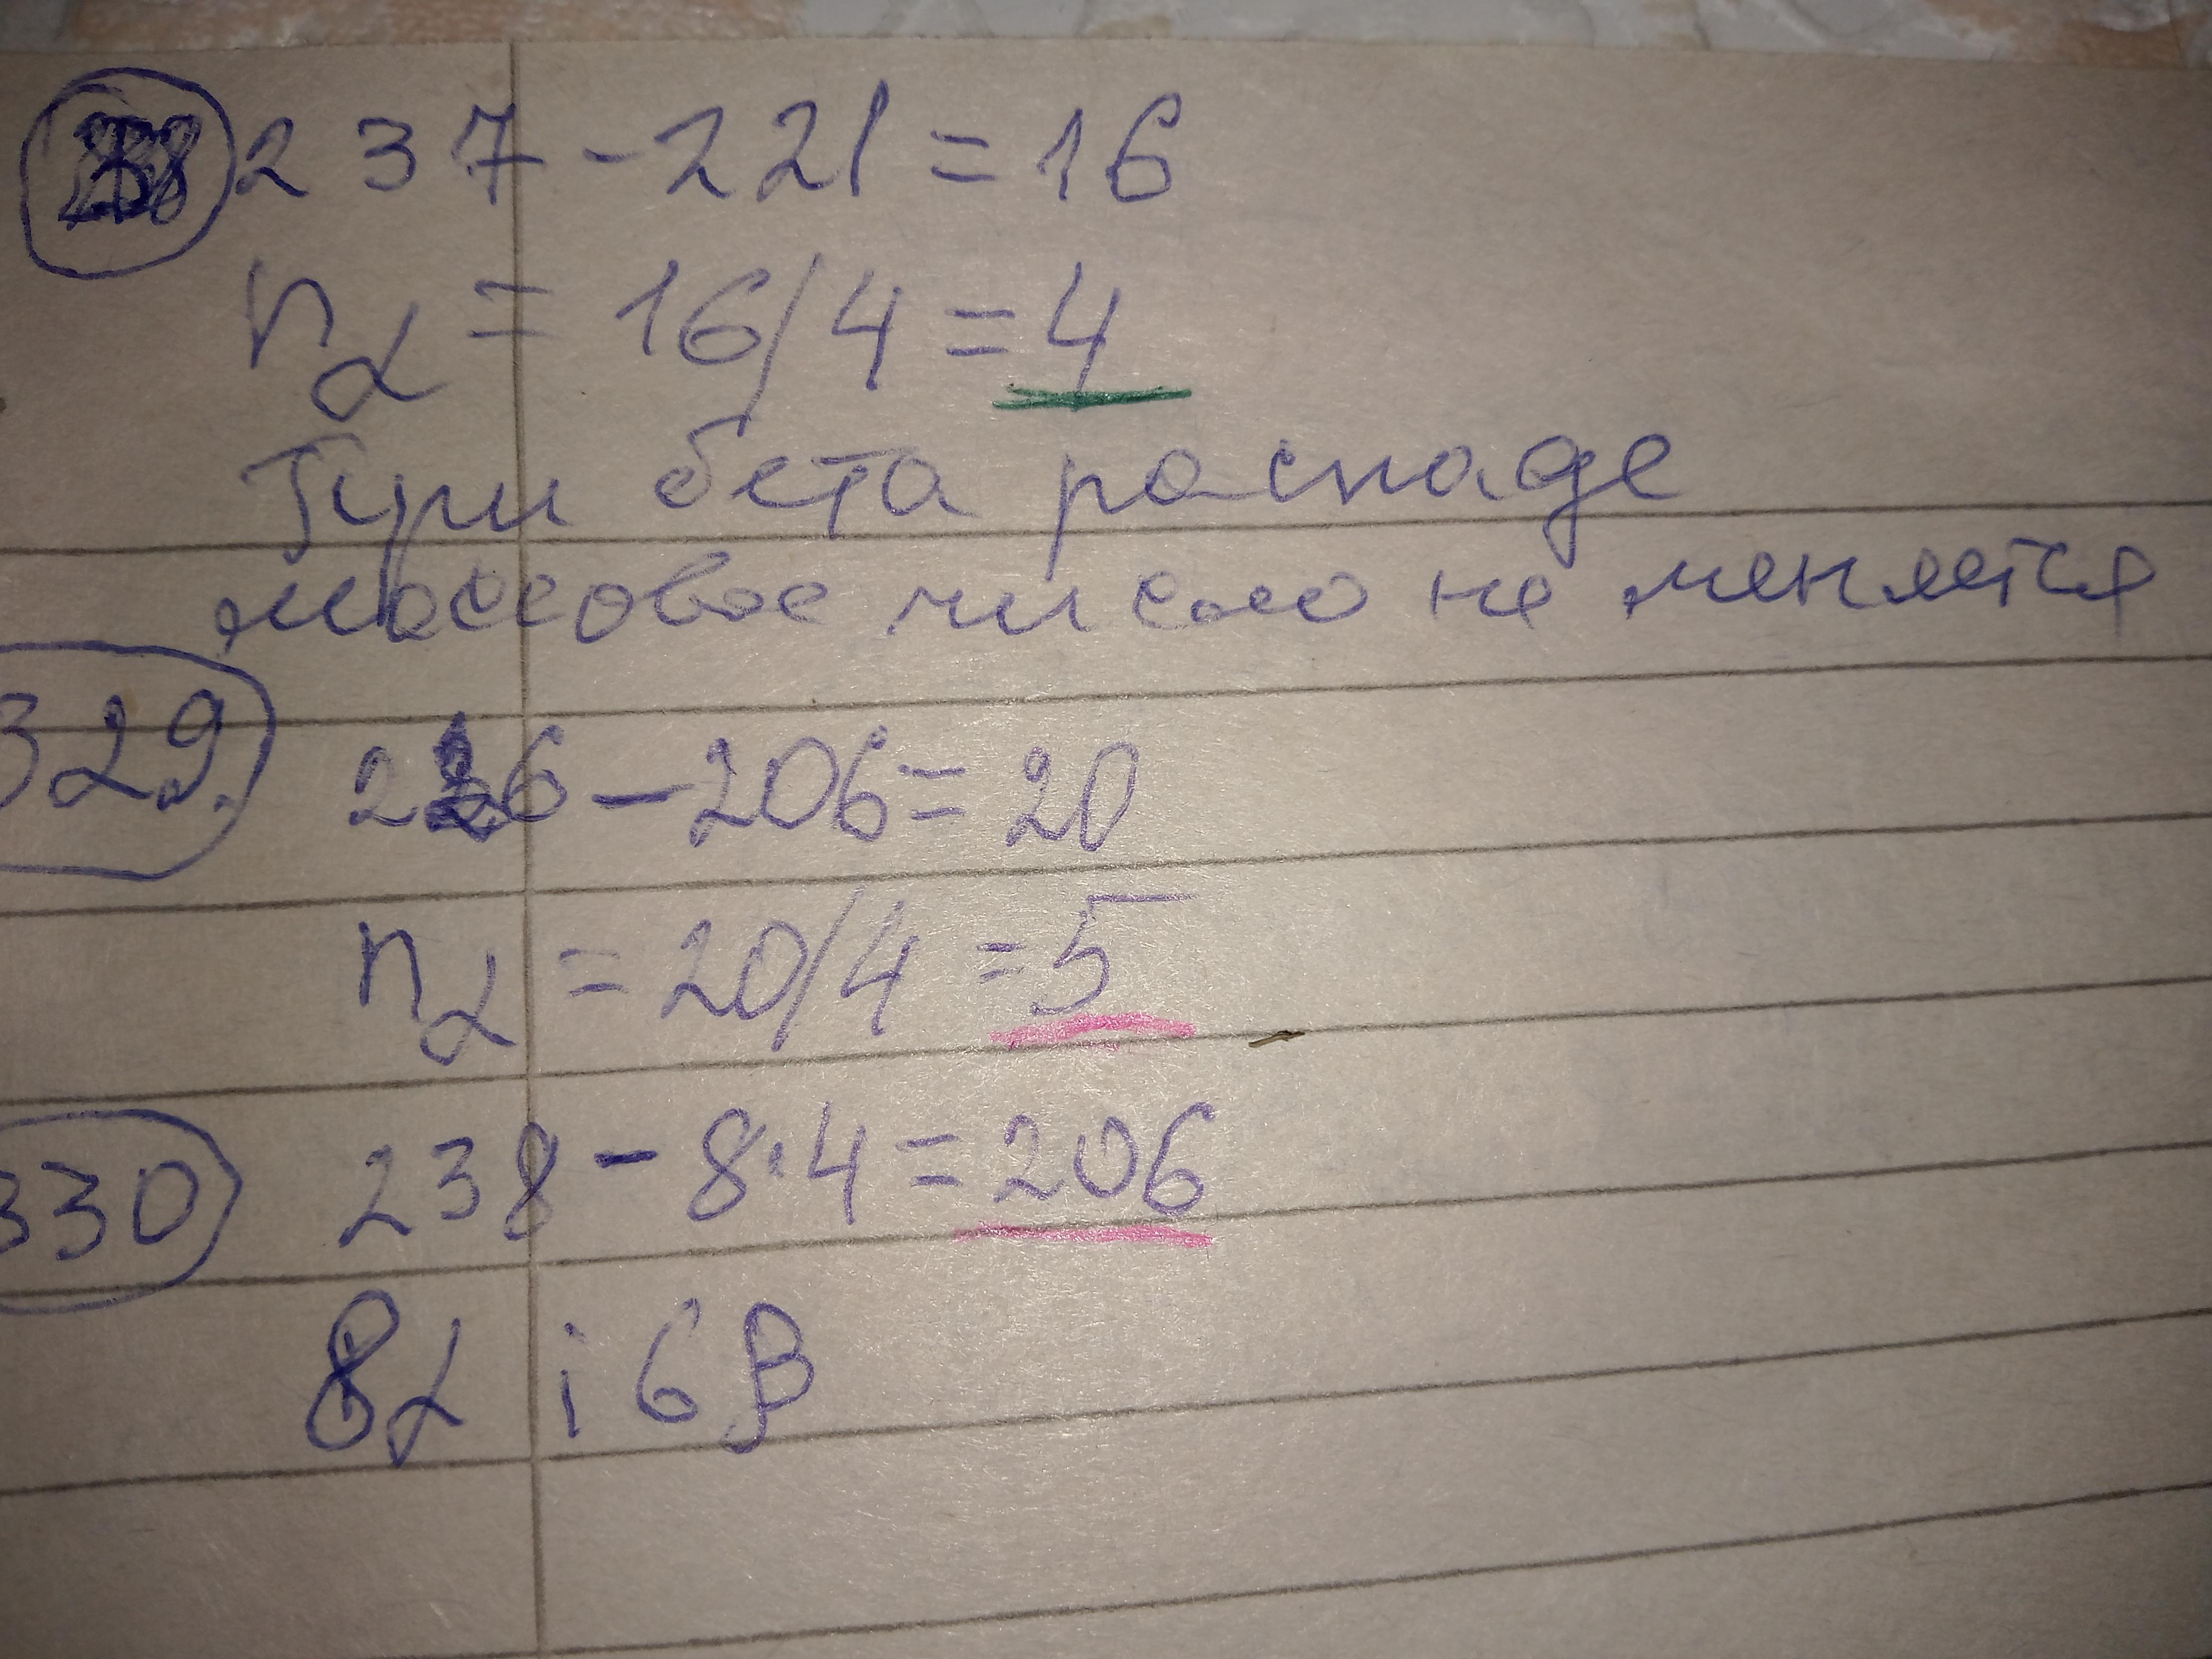 237-221=16
nα = 16/4=4
При бета распаде
массовое число не меняется
329. 226-206=20
nα = 20/4=5
330 238-8·4=206
8α i 6β